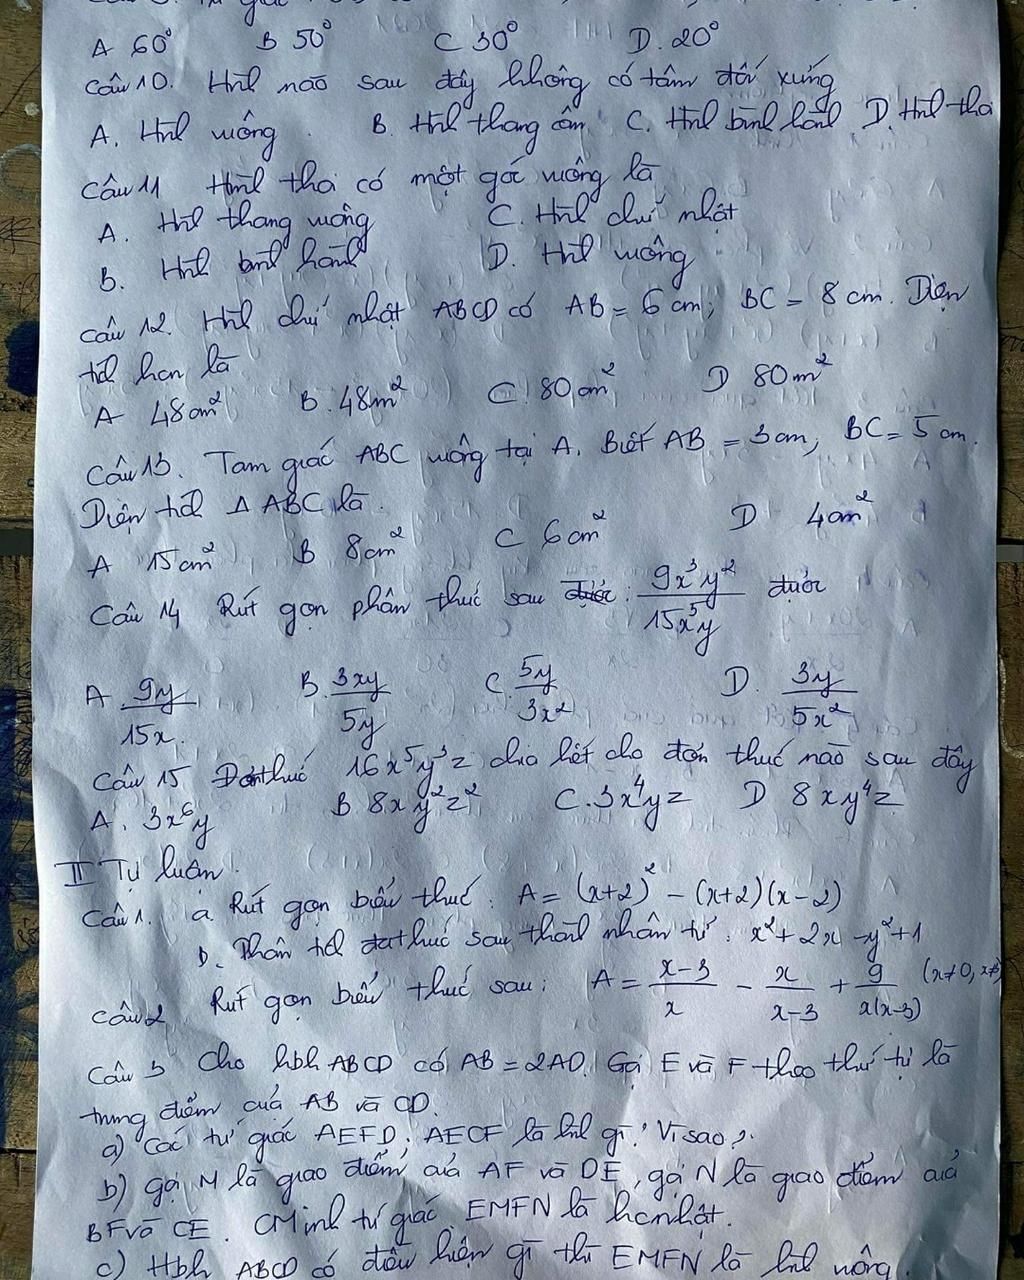 A 60° B 50° C 30° D. 20°
Câu 10. Hình nào sau đây không có tâm đối xứng
A. Hình vuông. B. Hình thang cân C. Hình bình hành D. Hình thoi
Câu 11 Hình thoi có một góc vuông là
A. Hình thang vuông C. Hình chữ nhật
B. Hình bình hành D. Hình vuông
Câu 12. Hình chữ nhật ABCD có AB = 6 cm; BC = 8 cm. Diện
tích hcn là
A 48cm² B. 48m² C. 80cm² D 80m²
Câu 13. Tam giác ABC vuông tại A. Biết AB = 3cm; BC = 5cm.
Diện tích Δ ABC là.
A 15cm² B 8cm² C 6cm² D 4cm²
Câu 14 Rút gọn phân thức sau : 9x³y²/15x⁵y được
A 9y/15x. B. 3xy/5y C. 5y/3x² D. 3y/5x²
Câu 15 Đa thức 16x⁵y³z chia hết cho đơn thức nào sau đây
A. 3x⁶y B 8xy²z² C. 3x⁴yz D 8xy⁴z
II Tự luân.
Câu 1. a Rút gọn biểu thức. A = (x+2)² - (x+2)(x-2)
b. Phân tích đa thức sau thành nhân tử: x² + 2x - y² + 1
Câu 2 Rút gọn biểu thức sau: A = (x-3)/x - x/(x-3) + 9/x(x-3) (x≠0, x≠
Câu 3 Cho hbh ABCD có AB = 2AD. Gọi E và F theo thứ tự là
trung điểm của AB và CD.
a) Các tứ giác AEFD, AECF là hình gì? Vì sao?
b) gọi M là giao điểm của AF và DE, gọi N là giao điểm của
BF và CE. CMinh tứ giác EMFN là hcnhật.
c) Hbh ABCD có điều kiện gì thì EMFN là hình vuông.